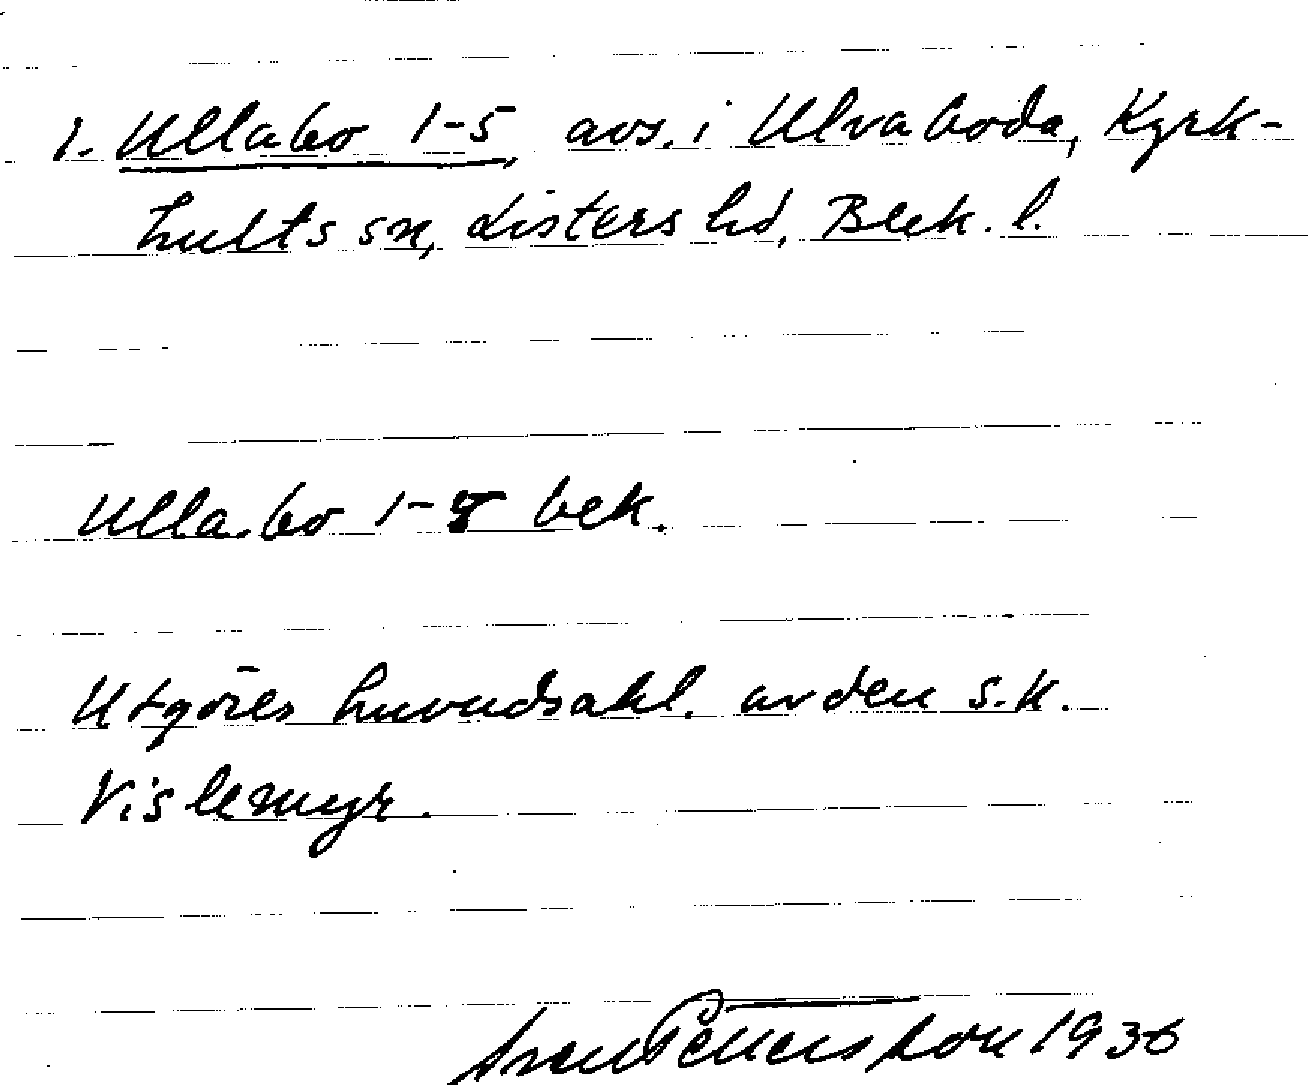 1. Ullabo 1-5, avs. i Ulvaboda, Kyrk-
hults sn, Listers hd, Blek. l.
Ullabo 1-8 bek.
Utgöres huvudsakl. av den s.k.
Vislemyr.
Sven Pettersson 1936